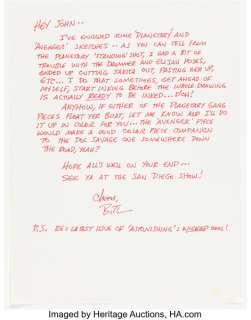 HEY JOHN..
I'VE ENCLOSED SOME "PLANETARY AND
AVENGER" SKETCHES -- AS YOU CAN TELL FROM
THE PLANETARY "STANDING" SHOT, I HAD A BIT OF
TROUBLE WITH THE DRUMMER AND ELIJAH POSES,
ENDED UP CUTTING JAKITA OUT, PASTING HER UP,
ETC... I DO THAT SOMETIMES, GET AHEAD OF
MYSELF, START INKING BEFORE THE WHOLE DRAWING
IS ACTUALLY READY TO BE INKED... D'OH!
ANYHOW, IF EITHER OF THE PLANETARY GANG
PIECES FLOAT YER BOAT, LET ME KNOW AND I'LL DO
IT UP IN COLOR FOR YOU... THE AVENGER PIECE
WOULD MAKE A GOOD COLOR PIECE COMPANION
TO THE DOC SAVAGE ONE SOMEWHERE DOWN
THE ROAD, YEAH?
HOPE ALL'S WELL ON YOUR END...
SEE YA AT THE SAN DIEGO SHOW!
P.S. RE: LATEST ISSUE OF "ASTONISHING":
Imaged by Heritage Auctions, HA.com